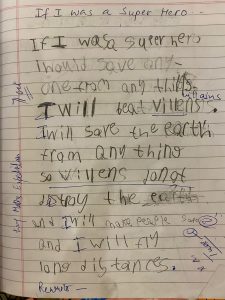 If I was a Super Hero...
If I was a super hero
I would save any-
one from any thing
I will beat villens.
I will save the earth
from any thing
so villens donot
distroy the earth
and I will make people safe
and I will fly
long distances.
Rewrite -